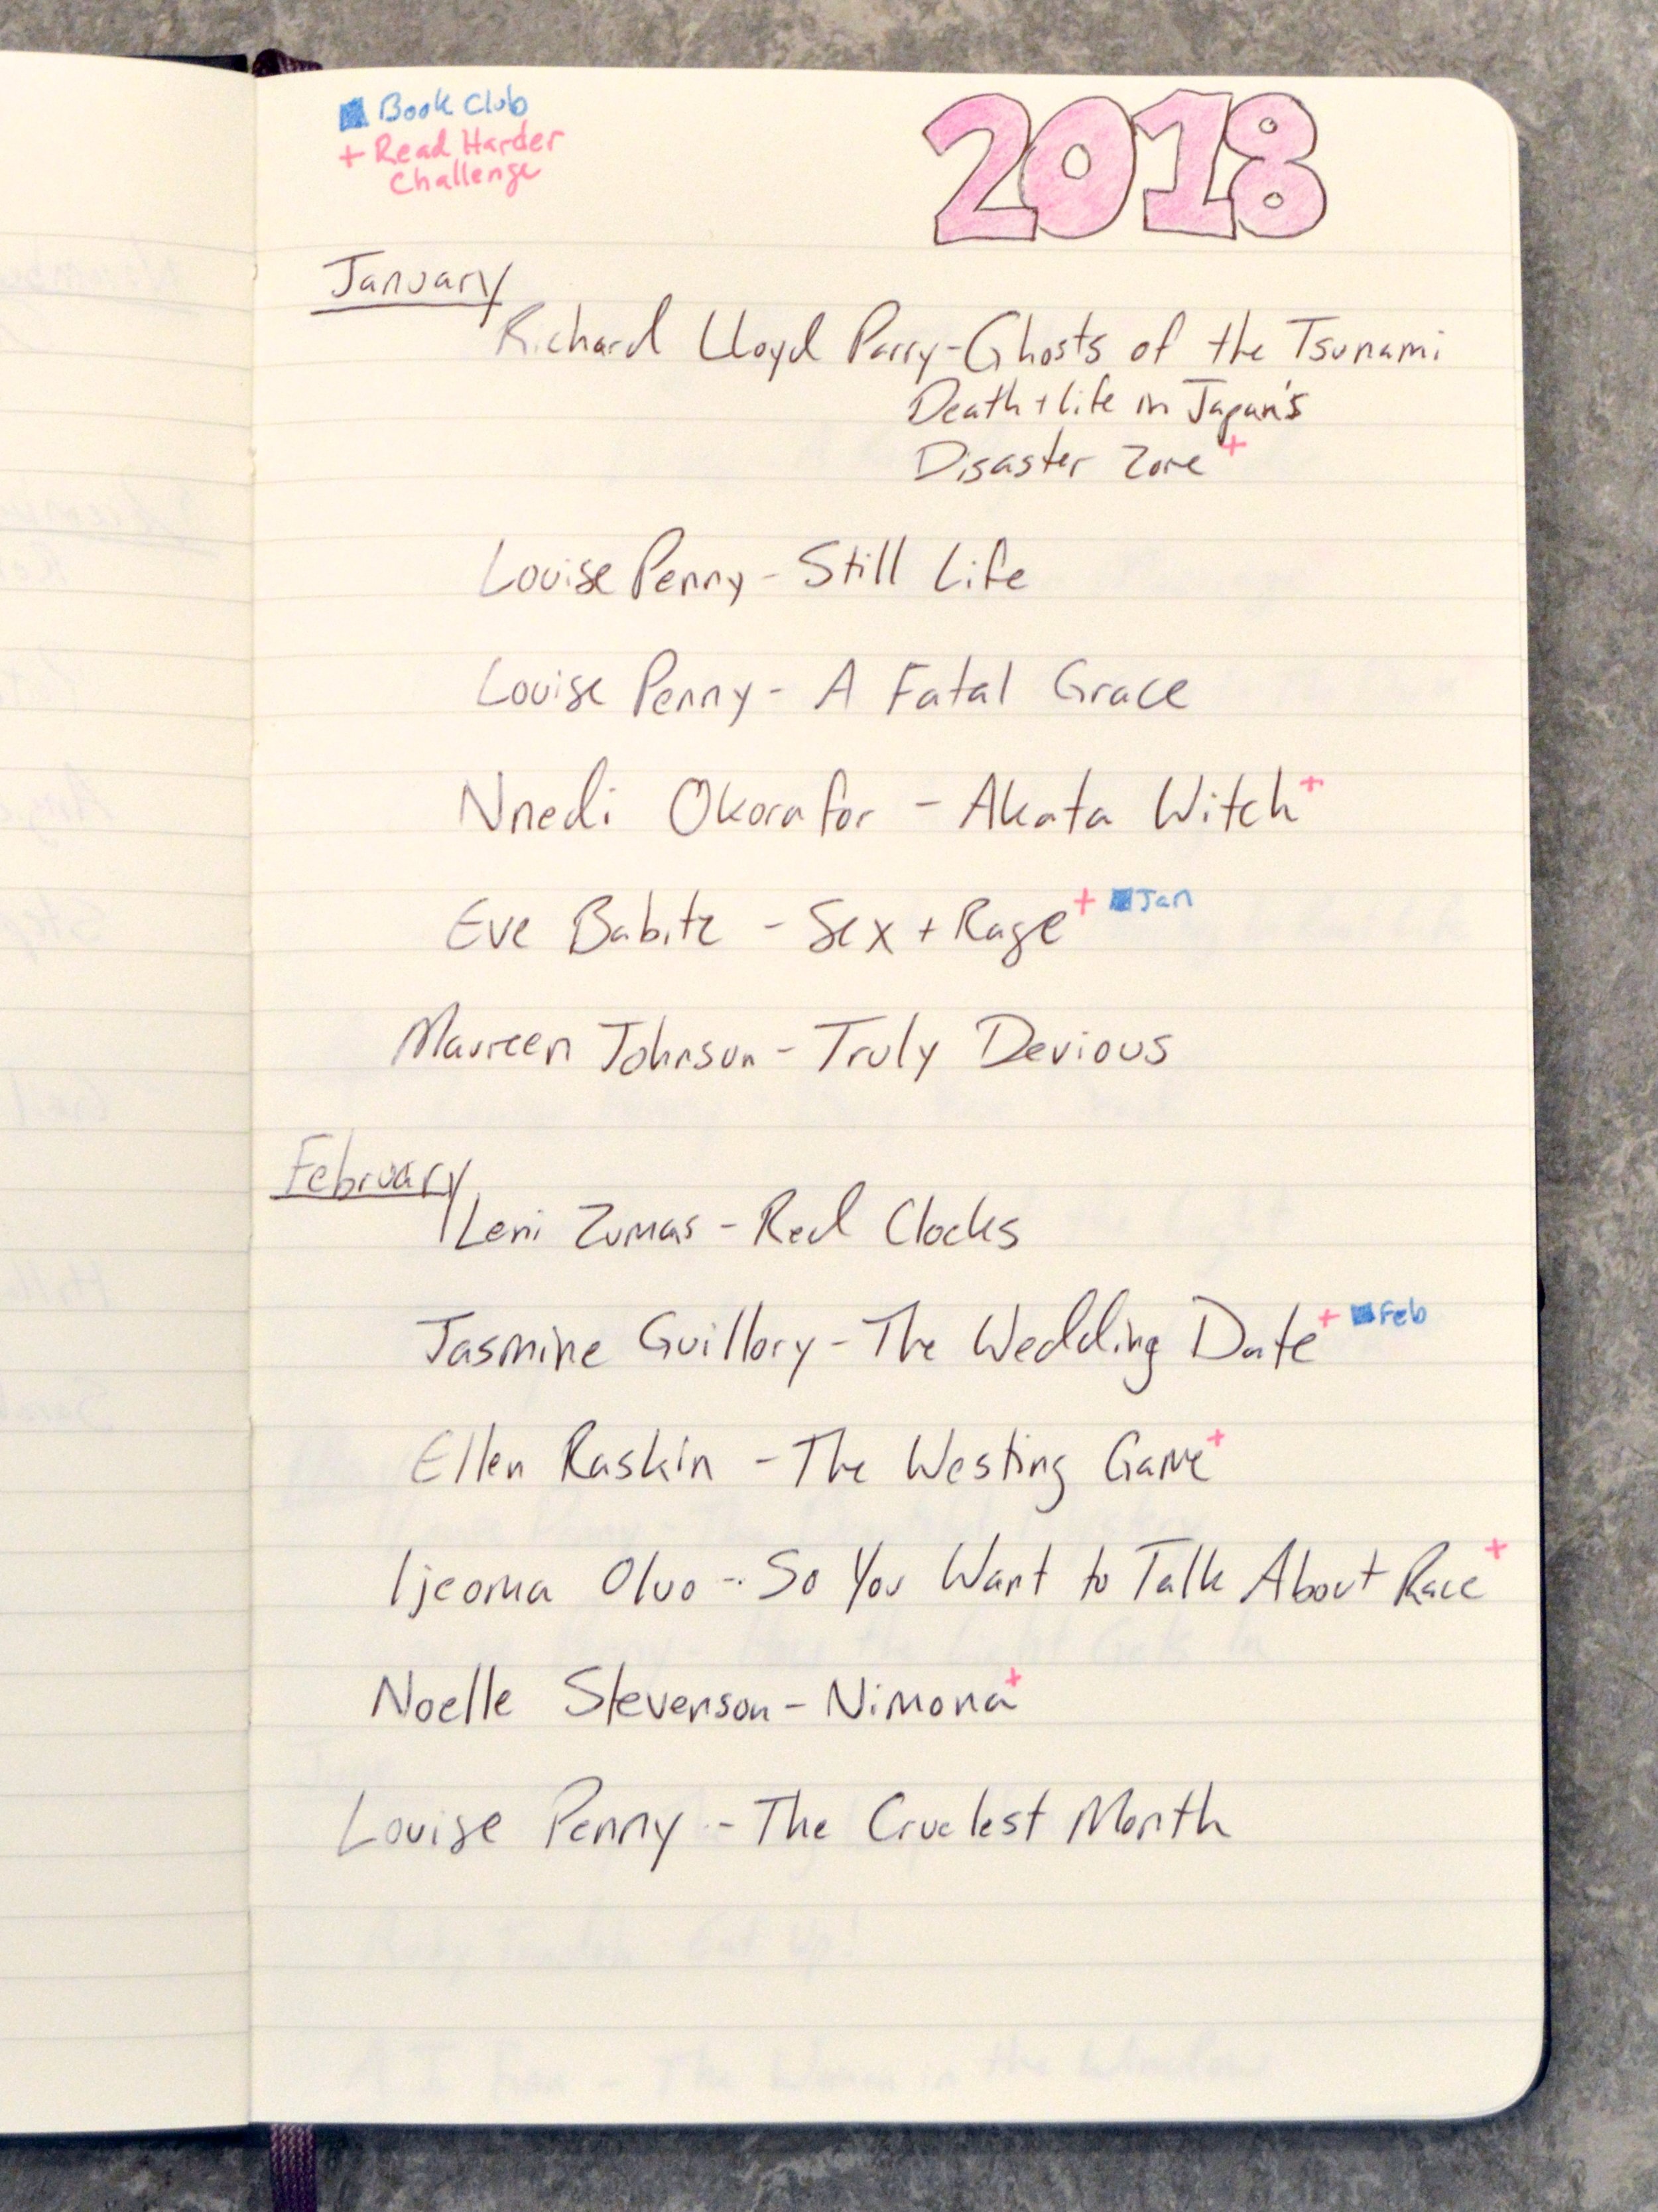 ■ Book Club
+ Read Harder
Challenge
2018
January
Richard Lloyd Parry - Ghosts of the Tsunami
Death + Life in Japan's
Disaster Zone +
Louise Penny - Still Life
Louise Penny - A Fatal Grace
Nnedi Okorafor - Akata Witch +
Eve Babitz - Sex + Rage + ■ Jan
Maureen Johnson - Truly Devious
February
Leni Zumas - Red Clocks
Jasmine Guillory - The Wedding Date + ■ Feb
Ellen Raskin - The Westing Game +
Ijeoma Oluo - So You Want to Talk About Race +
Noelle Stevenson - Nimona +
Louise Penny - The Cruelest Month